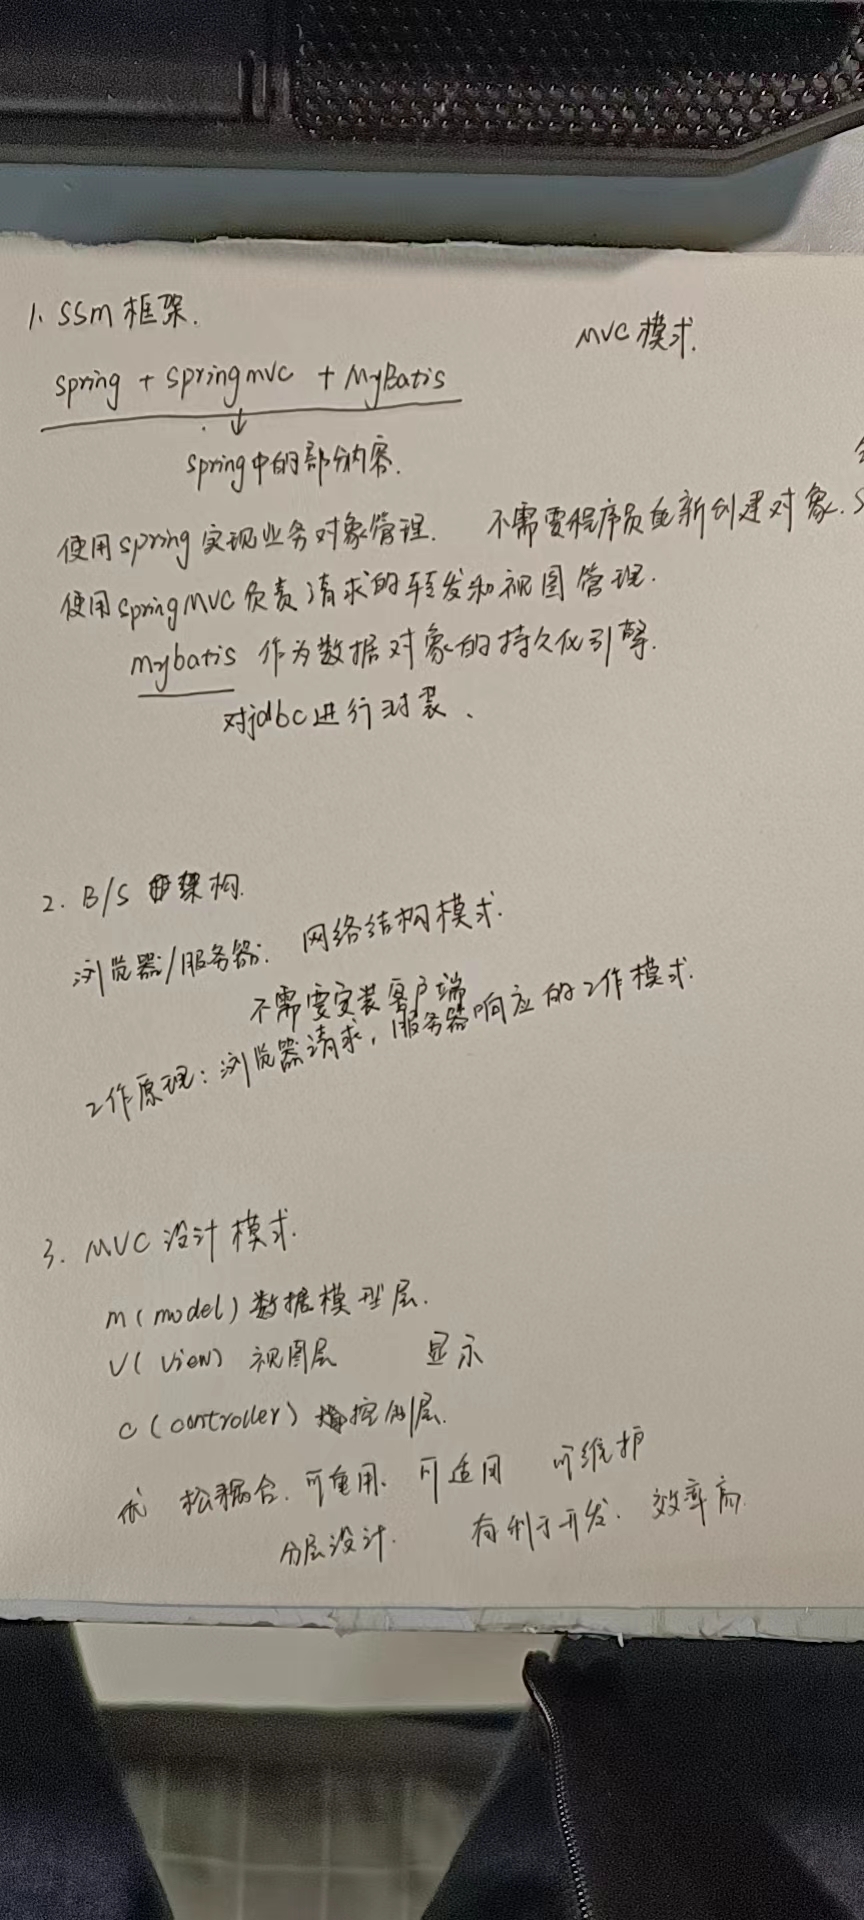 1. SSM 框架.
MVC 模式.
spring + springmvc + MyBatis
↓
spring中的部分内容.
使用spring实现业务对象管理. 不需要程序员重新创建对象.
使用springMVC负责请求的转发和视图管理.
mybatis 作为数据对象的持久化引擎.
对jdbc进行封装、
2. B/S 架构.
浏览器/服务器: 网络结构模式.
不需要安装客户端
工作原理: 浏览器请求, 服务器响应的工作模式.
3. MVC 设计模式.
m(model) 数据模型层.
V(view) 视图层 显示
c(controller) 控制层.
低 松耦合. 可重用. 可适用 可维护
分层设计. 有利于开发. 效率高.